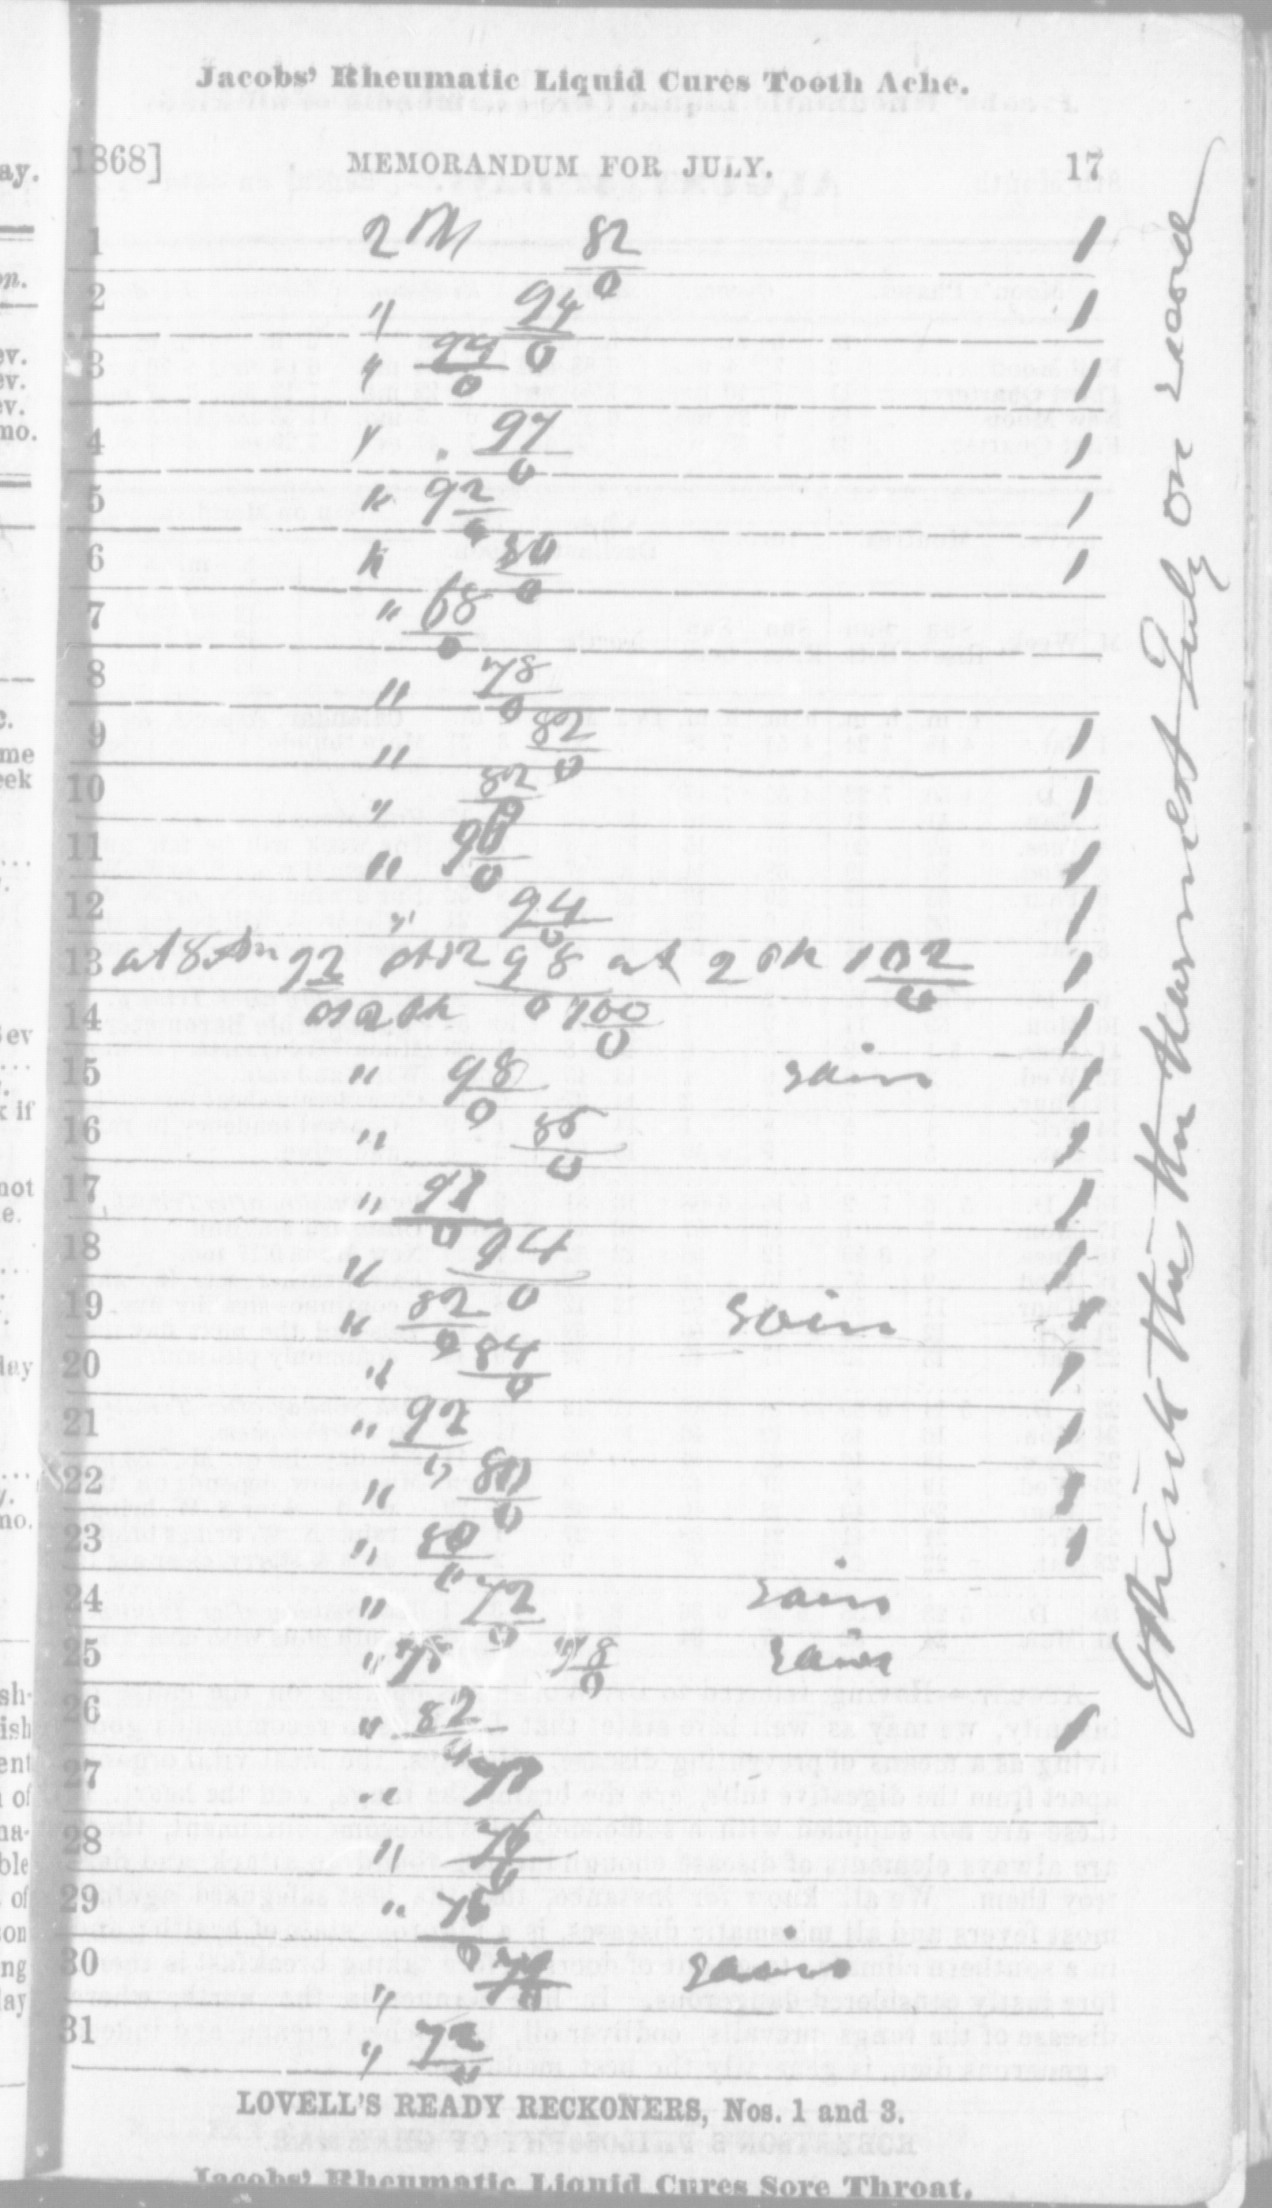 Jacobs' Rheumatic Liquid Cures Tooth Ache.
1868] MEMORANDUM FOR JULY. 17
1 2 82/0 1
2 " 94/0 1
3 " 94/0 1
4 " 97/0 1
5 " 92/0 1
6 " 80/0 1
7 " 68/0
8 " 78/0
9 " 82/0 1
10 " 82/0 1
11 " 1
12 " 94/0 1
13 at 8 92 at 12 98/0 at 2 102/0 1
14 at 2 100/0 1
15 " 98/0 rain 1
16 " 86/0 1
17 " 1
18 " 94/0 1
19 " 82/0 rain 1
20 " 84/0 1
21 " 92 1
22 " 80/0 1
23 " 80 1
24 " 72/0 rain
25 " 78/0 rain
26 " 82 1
27 "
28 " 76/0
29 " 76/0
30 " rain
31 " 72/0
I think this the Warmest July on record
LOVELL'S READY RECKONERS, Nos. 1 and 3.
Jacobs' Rheumatic Liquid Cures Sore Throat.